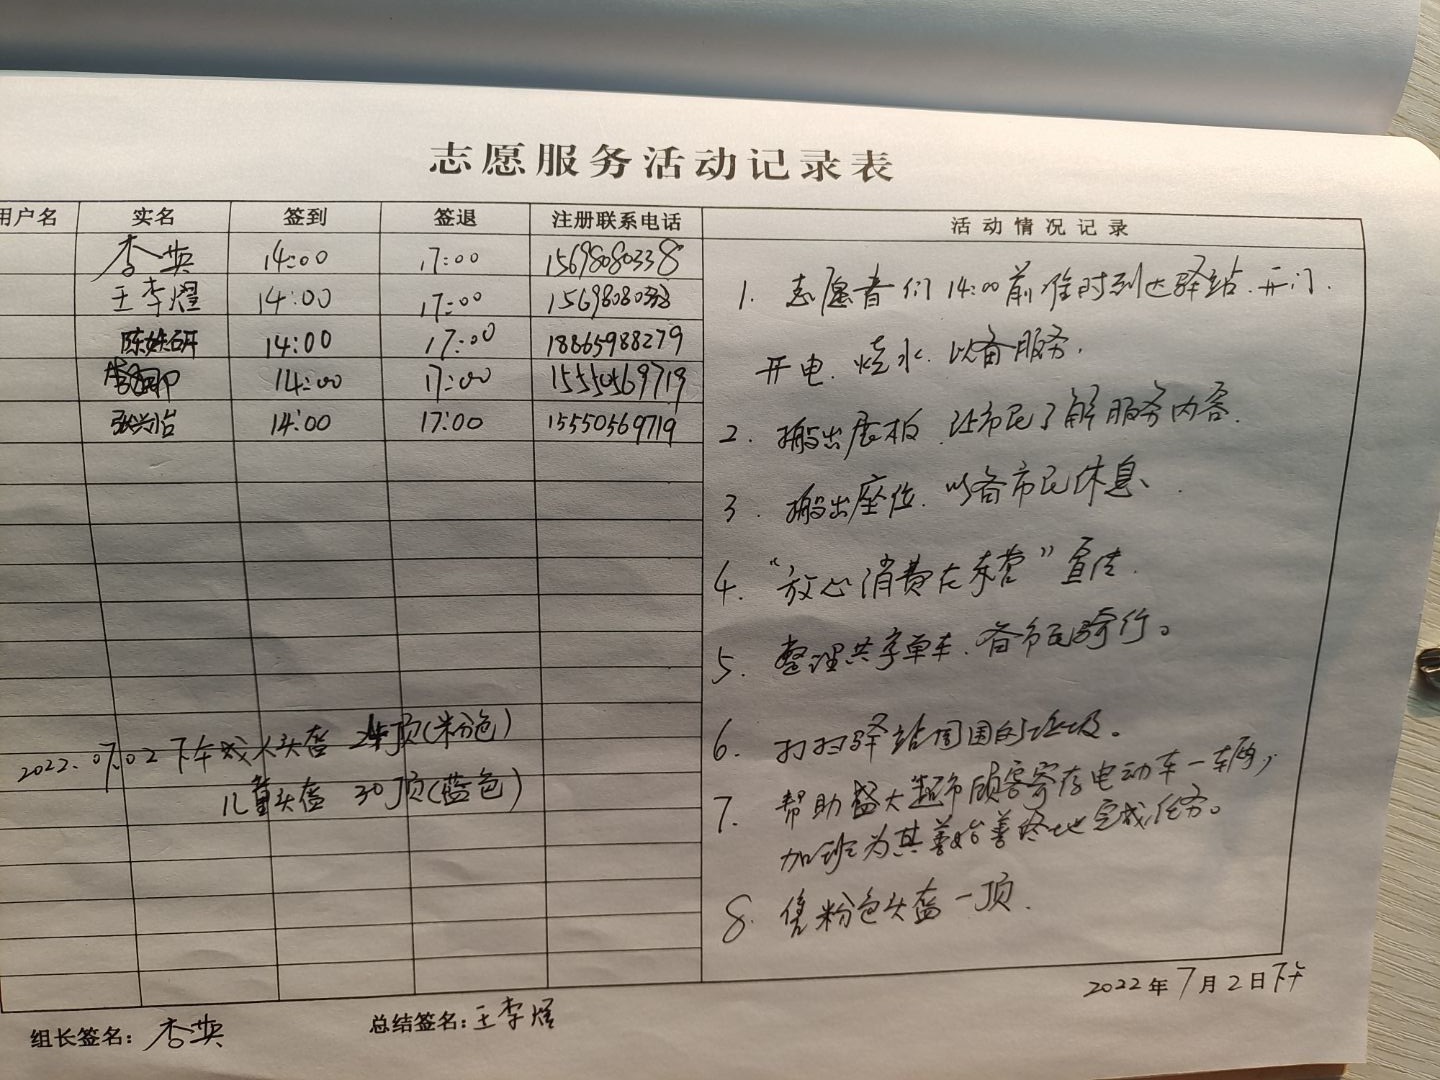 志愿服务活动记录表
用户名 实名 签到 签退 注册联系电话 活动情况记录
李英 14:00 17:00 15698080338
王李熠 14:00 17:00 15698080338
陈姝研 14:00 17:00 18865988279
14:00 17:00 15550569719
张兴怡 14:00 17:00 15550569719
2022.07.02 下午成人头盔 24顶(粉色)
儿童头盔 30顶(蓝色)
1. 志愿者们14:00前准时到达驿站.开门.
开电.烧水.以备服务.
2. 搬出展板.让市民了解服务内容.
3. 搬出座位.以备市民休息、
4. “放心消费在东营”宣传.
5. 整理共享单车.备市民骑行。
6. 打扫驿站周围的垃圾。
7. 帮助盛大超市顾客寄存电动车一辆,
加班为其善始善终地完成任务。
8. 售粉色头盔一顶.
2022年7月2日下午
组长签名: 李英 总结签名: 王李熠